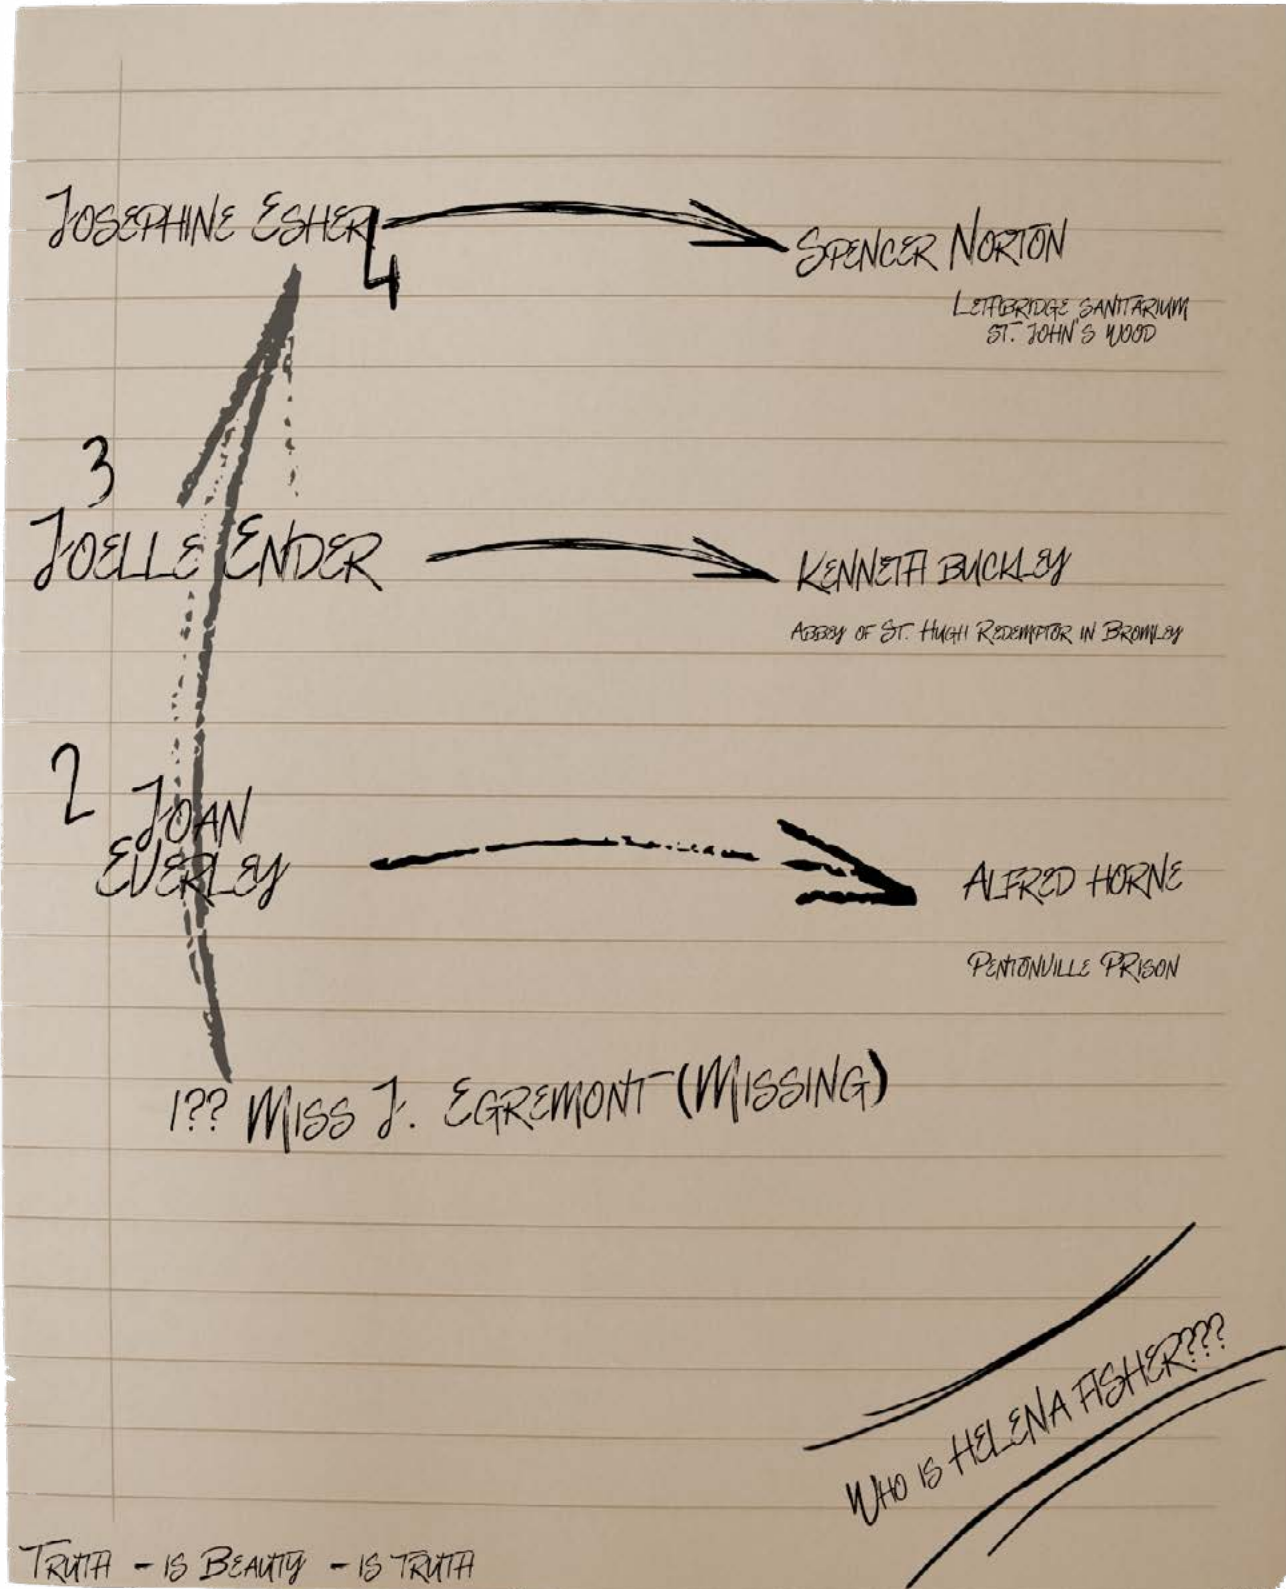 JOSEPHINE ESHER
4
SPENCER NORTON
LETHBRIDGE SANITARIUM
ST. JOHN'S WOOD
3
JOELLE ENDER
KENNETH BUCKLEY
ABBEY OF ST. HUGH REDEMPTOR IN BROMLEY
2
JOAN
EVERLEY
ALFRED HORNE
PENTONVILLE PRISON
1?? MISS J. EGREMONT (MISSING)
WHO IS HELENA FISHER???
TRUTH - IS BEAUTY - IS TRUTH